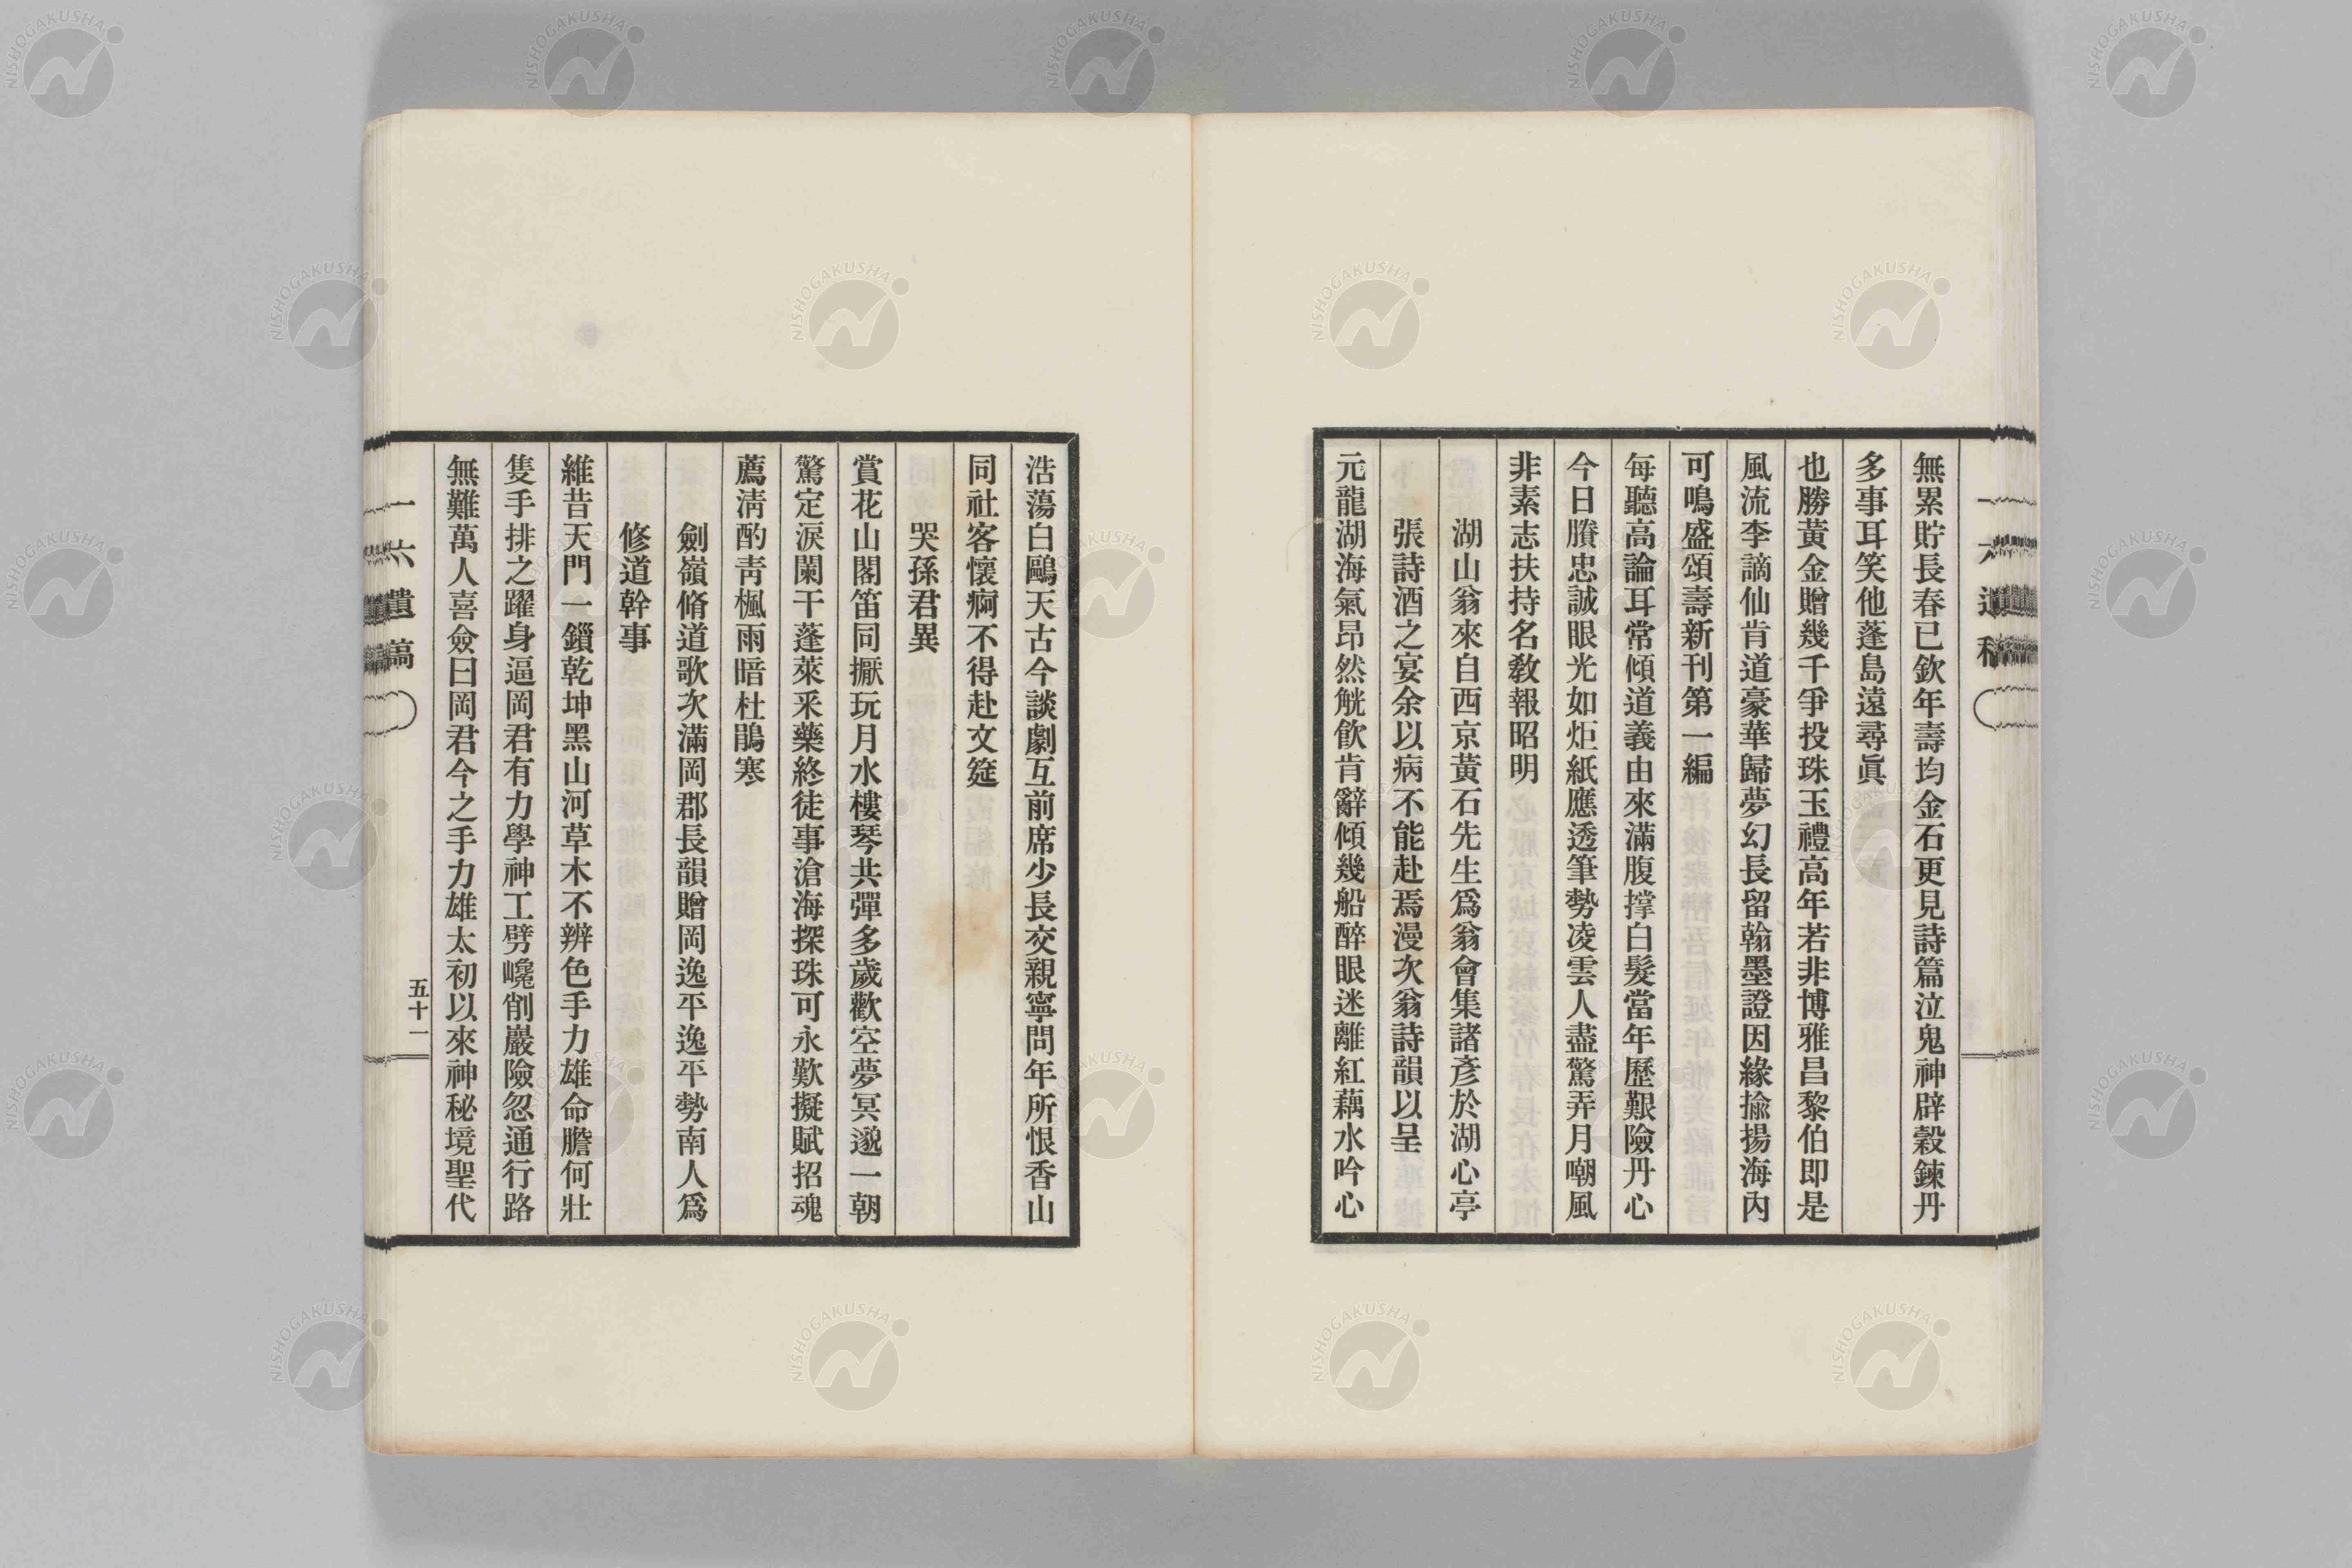 無累貯長春已欽年壽均金石更見詩篇泣鬼神辟穀鍊丹
多事耳笑他蓬島遠尋眞
也勝黃金贈幾千爭投珠玉禮高年若非博雅昌黎伯即是
風流李謫仙肯道豪華歸夢幻長留翰墨證因緣揄揚海內
可鳴盛頌壽新刊第一編
每聽高論耳常傾道義由來滿腹撑白髮當年歷艱險丹心
今日賸忠誠眼光如炬紙應透筆勢凌雲人盡驚弄月嘲風
非素志扶持名敎報昭明
湖山翁來自西京黃石先生爲翁會集諸彥於湖心亭
張詩酒之宴余以病不能赴焉漫次翁詩韻以呈
元龍湖海氣昂然觥飮肯辭傾幾船醉眼迷離紅藕水吟心
浩蕩白鷗天古今談劇互前席少長交親寧問年所恨香山
同社客懷痾不得赴文筵
哭孫君異
賞花山閣笛同擫玩月水樓琴共彈多歲歡空夢冥邈一朝
驚定淚闌干蓬萊釆藥終徒事滄海探珠可永歎擬賦招魂
薦淸酌靑楓雨暗杜鵑寒
劍嶺脩道歌次滿岡郡長韻贈岡逸平逸平勢南人爲
修道幹事
維昔天門一鎻乾坤黑山河草木不辨色手力雄命膽何壯
隻手排之躍身逼岡君有力學神工劈巉削巖險忽通行路
無難萬人喜僉曰岡君今之手力雄太初以來神秘境聖代
一六遺稿
五十一
NISHOGAKUSHA